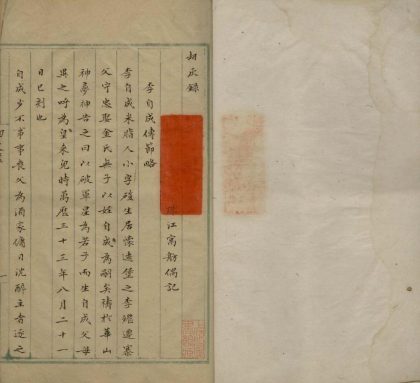 刼灰錄
珠江寓舫偶記
李自成傳節略
李自成米脂人小字碩生居懷遠堡之李繼遷寨
父守忠娶金氏無子以姪自成為嗣矣禱於華山
神夢神告之曰以破軍星為若子而生自成父母
異之呼為黃来兒時萬曆三十三年八月二十一
日巳刻也
自成少不事事喪父為酒家傭日沈醉主者逐之